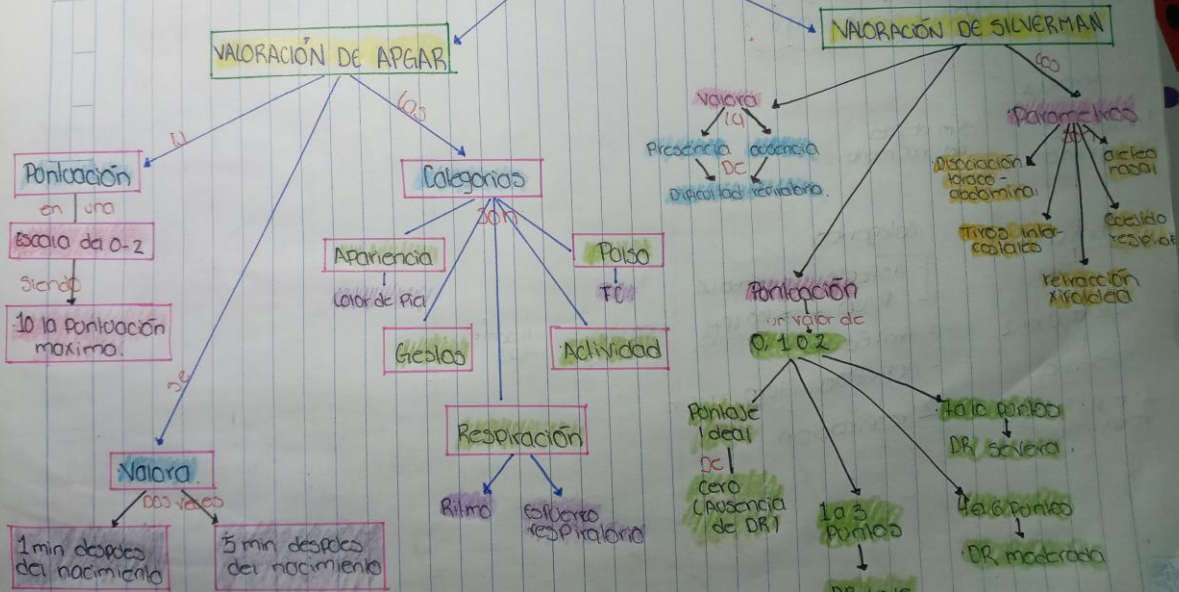 VALORACIÓN DE APGAR
la
Pontuación
en una
Escala de 0-2
siendo
10 la pontuación
maxima.
se
Valora.
Dos veces
1 min despues
del nacimiento
5 min despues
del nacimiento
las
Categorias
son
Apariencia
Color de piel
Gestos
Respiración
Ritmo
Esfuerzo
respiratorio
Actividad
Polso
FC
VALORACIÓN DE SILVERMAN
Valora
la
Presencia
ausencia
DC
Dificultad respiratoria.
Pontuación
un valor de
0, 1 o 2
Pontaje
ideal
DC
cero
(Ausencia
de DR)
1 a 3
pontos
DR leve
4 a 6 pontos
DR moderada
7 a 10 pontos
DR severa
con
Parametros
son
Disociación
toraco-
abdominal
Tiros inter-
costales
retracción
xifoidea
Quejido
respirat
aleteo
nasal